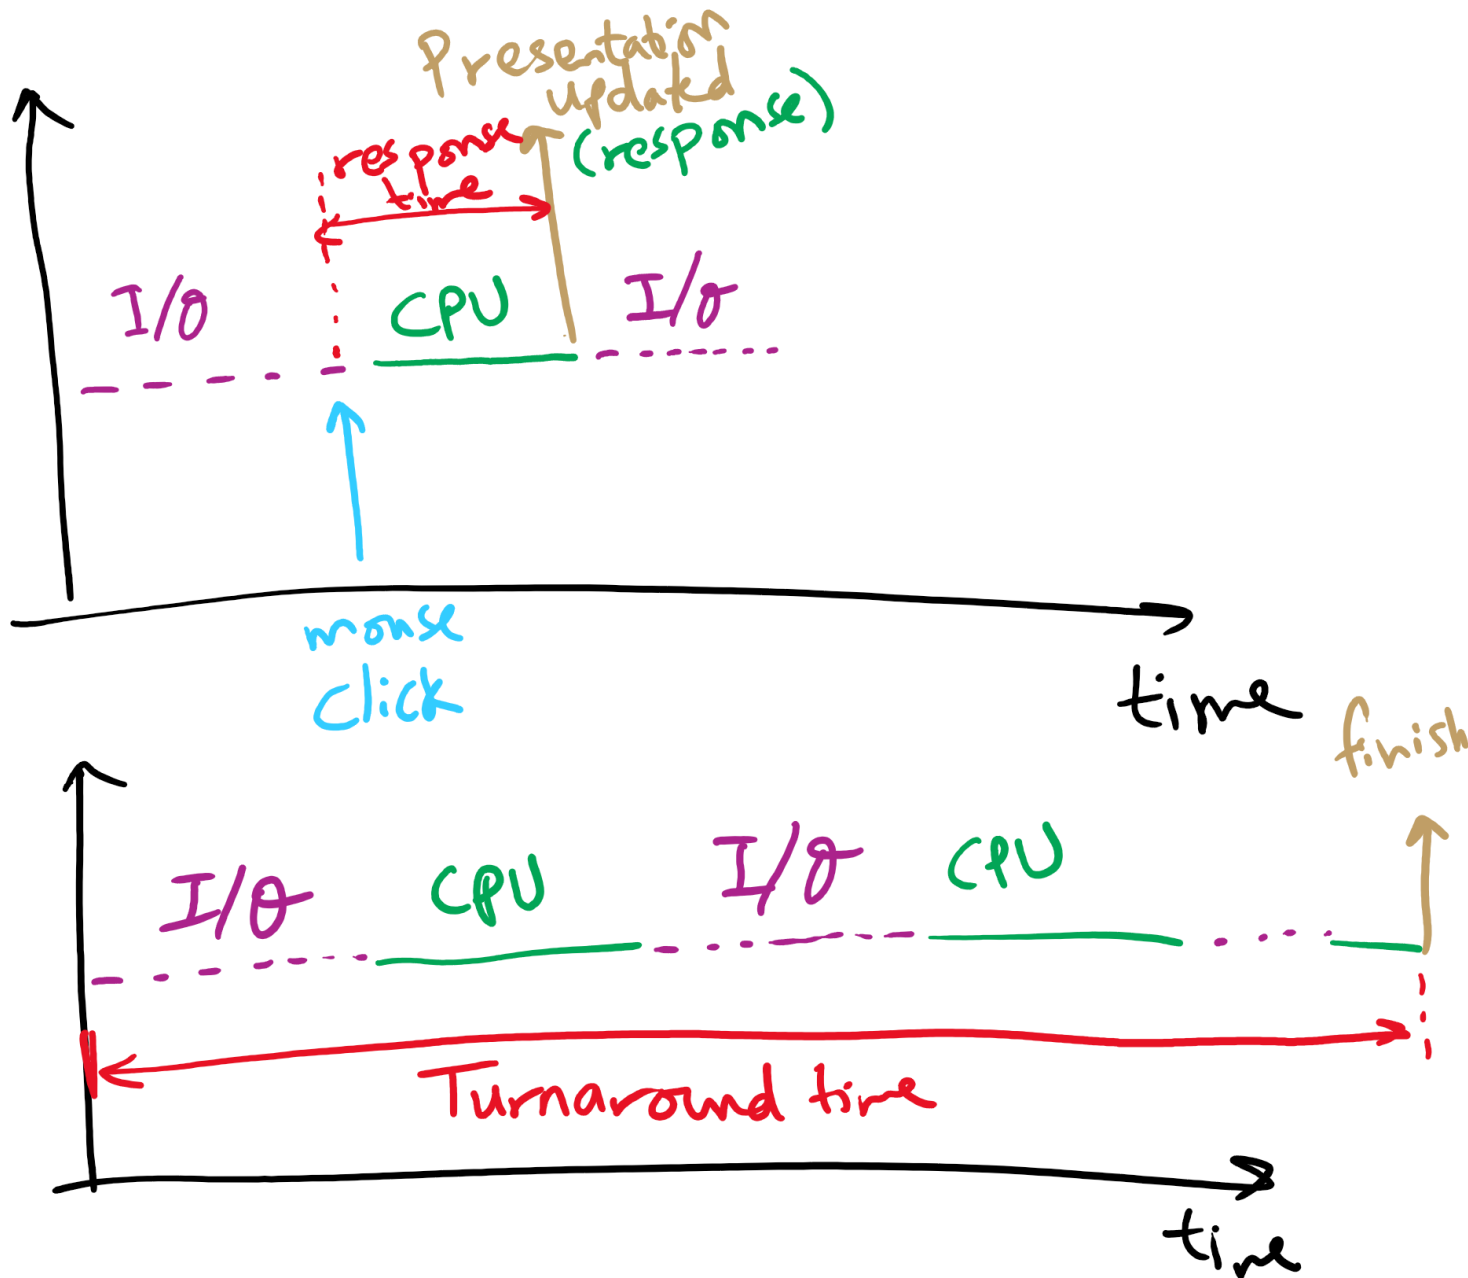 Presentation
updated
(response)
response
time
I/O
CPU
I/O
mouse
click
time
finish
I/O
CPU
I/O
CPU
Turnaround time
time